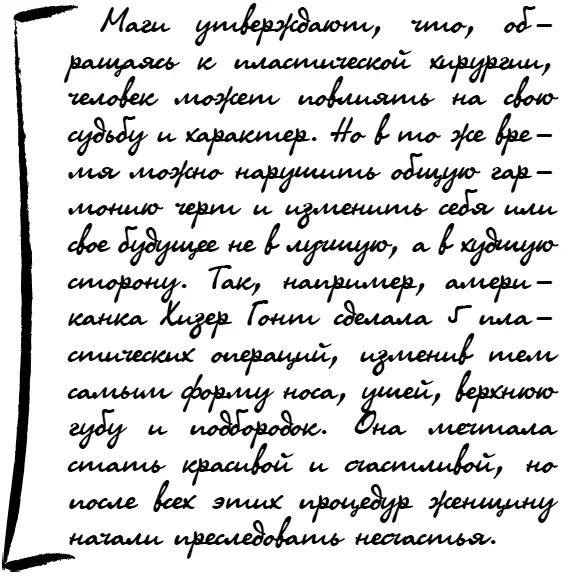 Маги утверждают, что, об-
ращаясь к пластической хирургии,
человек может повлиять на свою
судьбу и характер. Но в то же вре-
мя можно нарушить общую гар-
монию черт и изменить себя или
свое будущее не в лучшую, а в худшую
сторону. Так, например, амери-
канка Хизер Гонт сделала 5 пла-
стических операций, изменив тем
самым форму носа, ушей, верхнюю
губу и подбородок. Она мечтала
стать красивой и счастливой, но
после всех этих процедур женщину
начали преследовать несчастья.